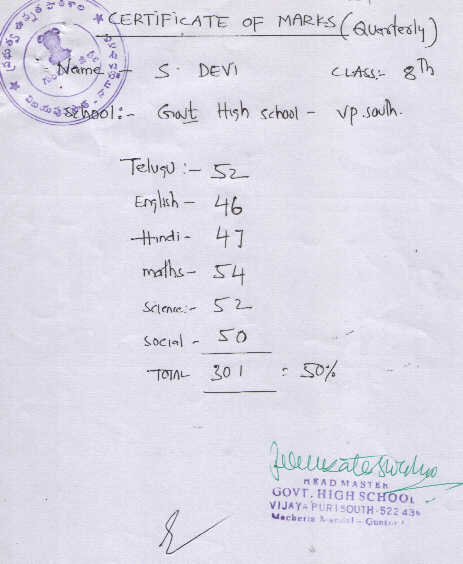 CERTIFICATE OF MARKS (Quarterly)
Name :- S. DEVI CLASS:- 8th
School:- Govt High school - vp.south.
Telugu :- 52
English - 46
Hindi - 47
maths - 54
Science:- 52
social - 50
TOTAL 301 = 50%
HEAD MASTER
GOVT. HIGH SCHOOL
VIJAYA PURI SOUTH-522 439
Macherla Mandal - Guntur